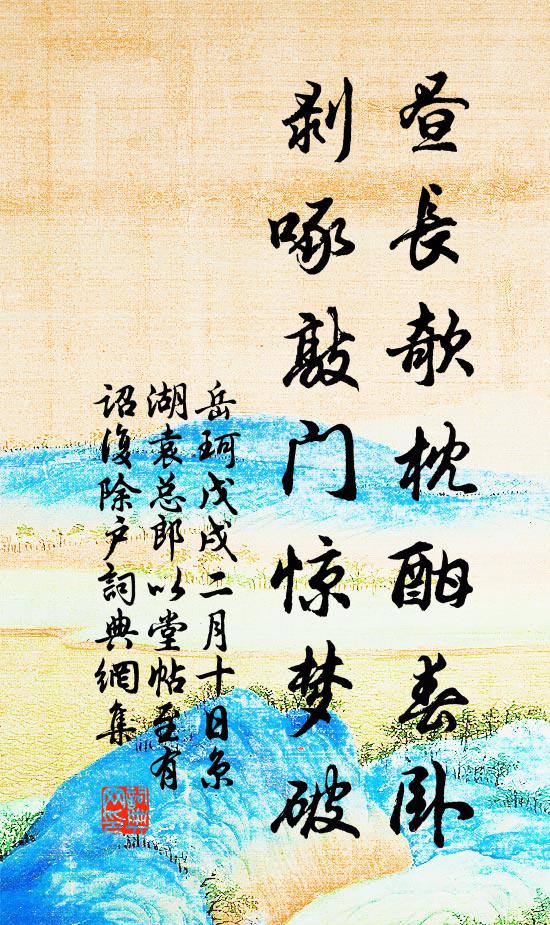 昼長欹枕酣春卧
剥啄敲门惊梦破
岳珂戊戌二月十日京
湖袁总郎以堂帖至有
诏復除户詞典網集